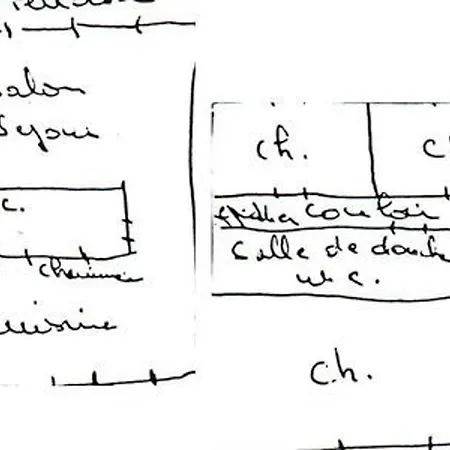 salon
Sejour
c.
cheminée
cuisine
ch.
c
couloir
Salle de douche
w.c.
ch.